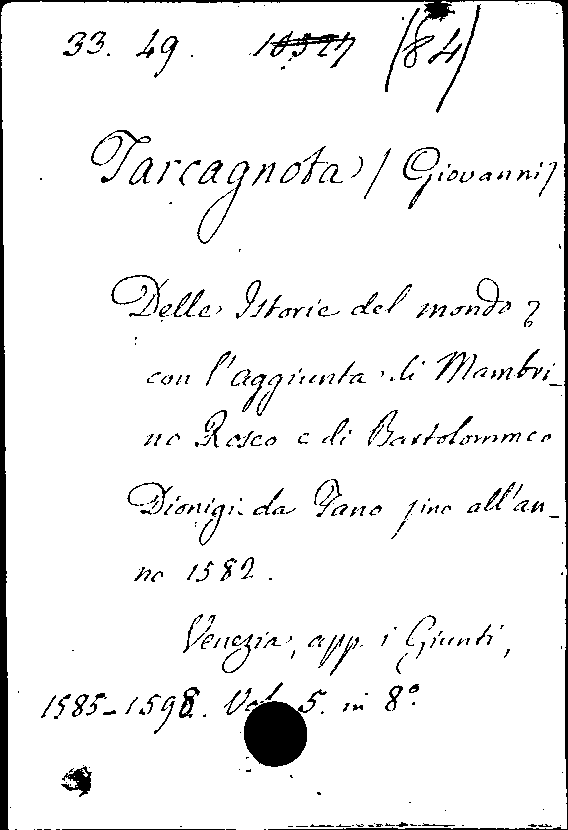 33. 49. 10527 (84)
Tarcagnota / Giovanni /
Delle Istorie del mondo
con l'aggiunta di Mambri-
no Roseo e di Bartolommeo
Dionigi da Fano fino all'an-
no 1582.
Venezia, app. i Giunti,
1585-1598. Vol. 5. in 8°